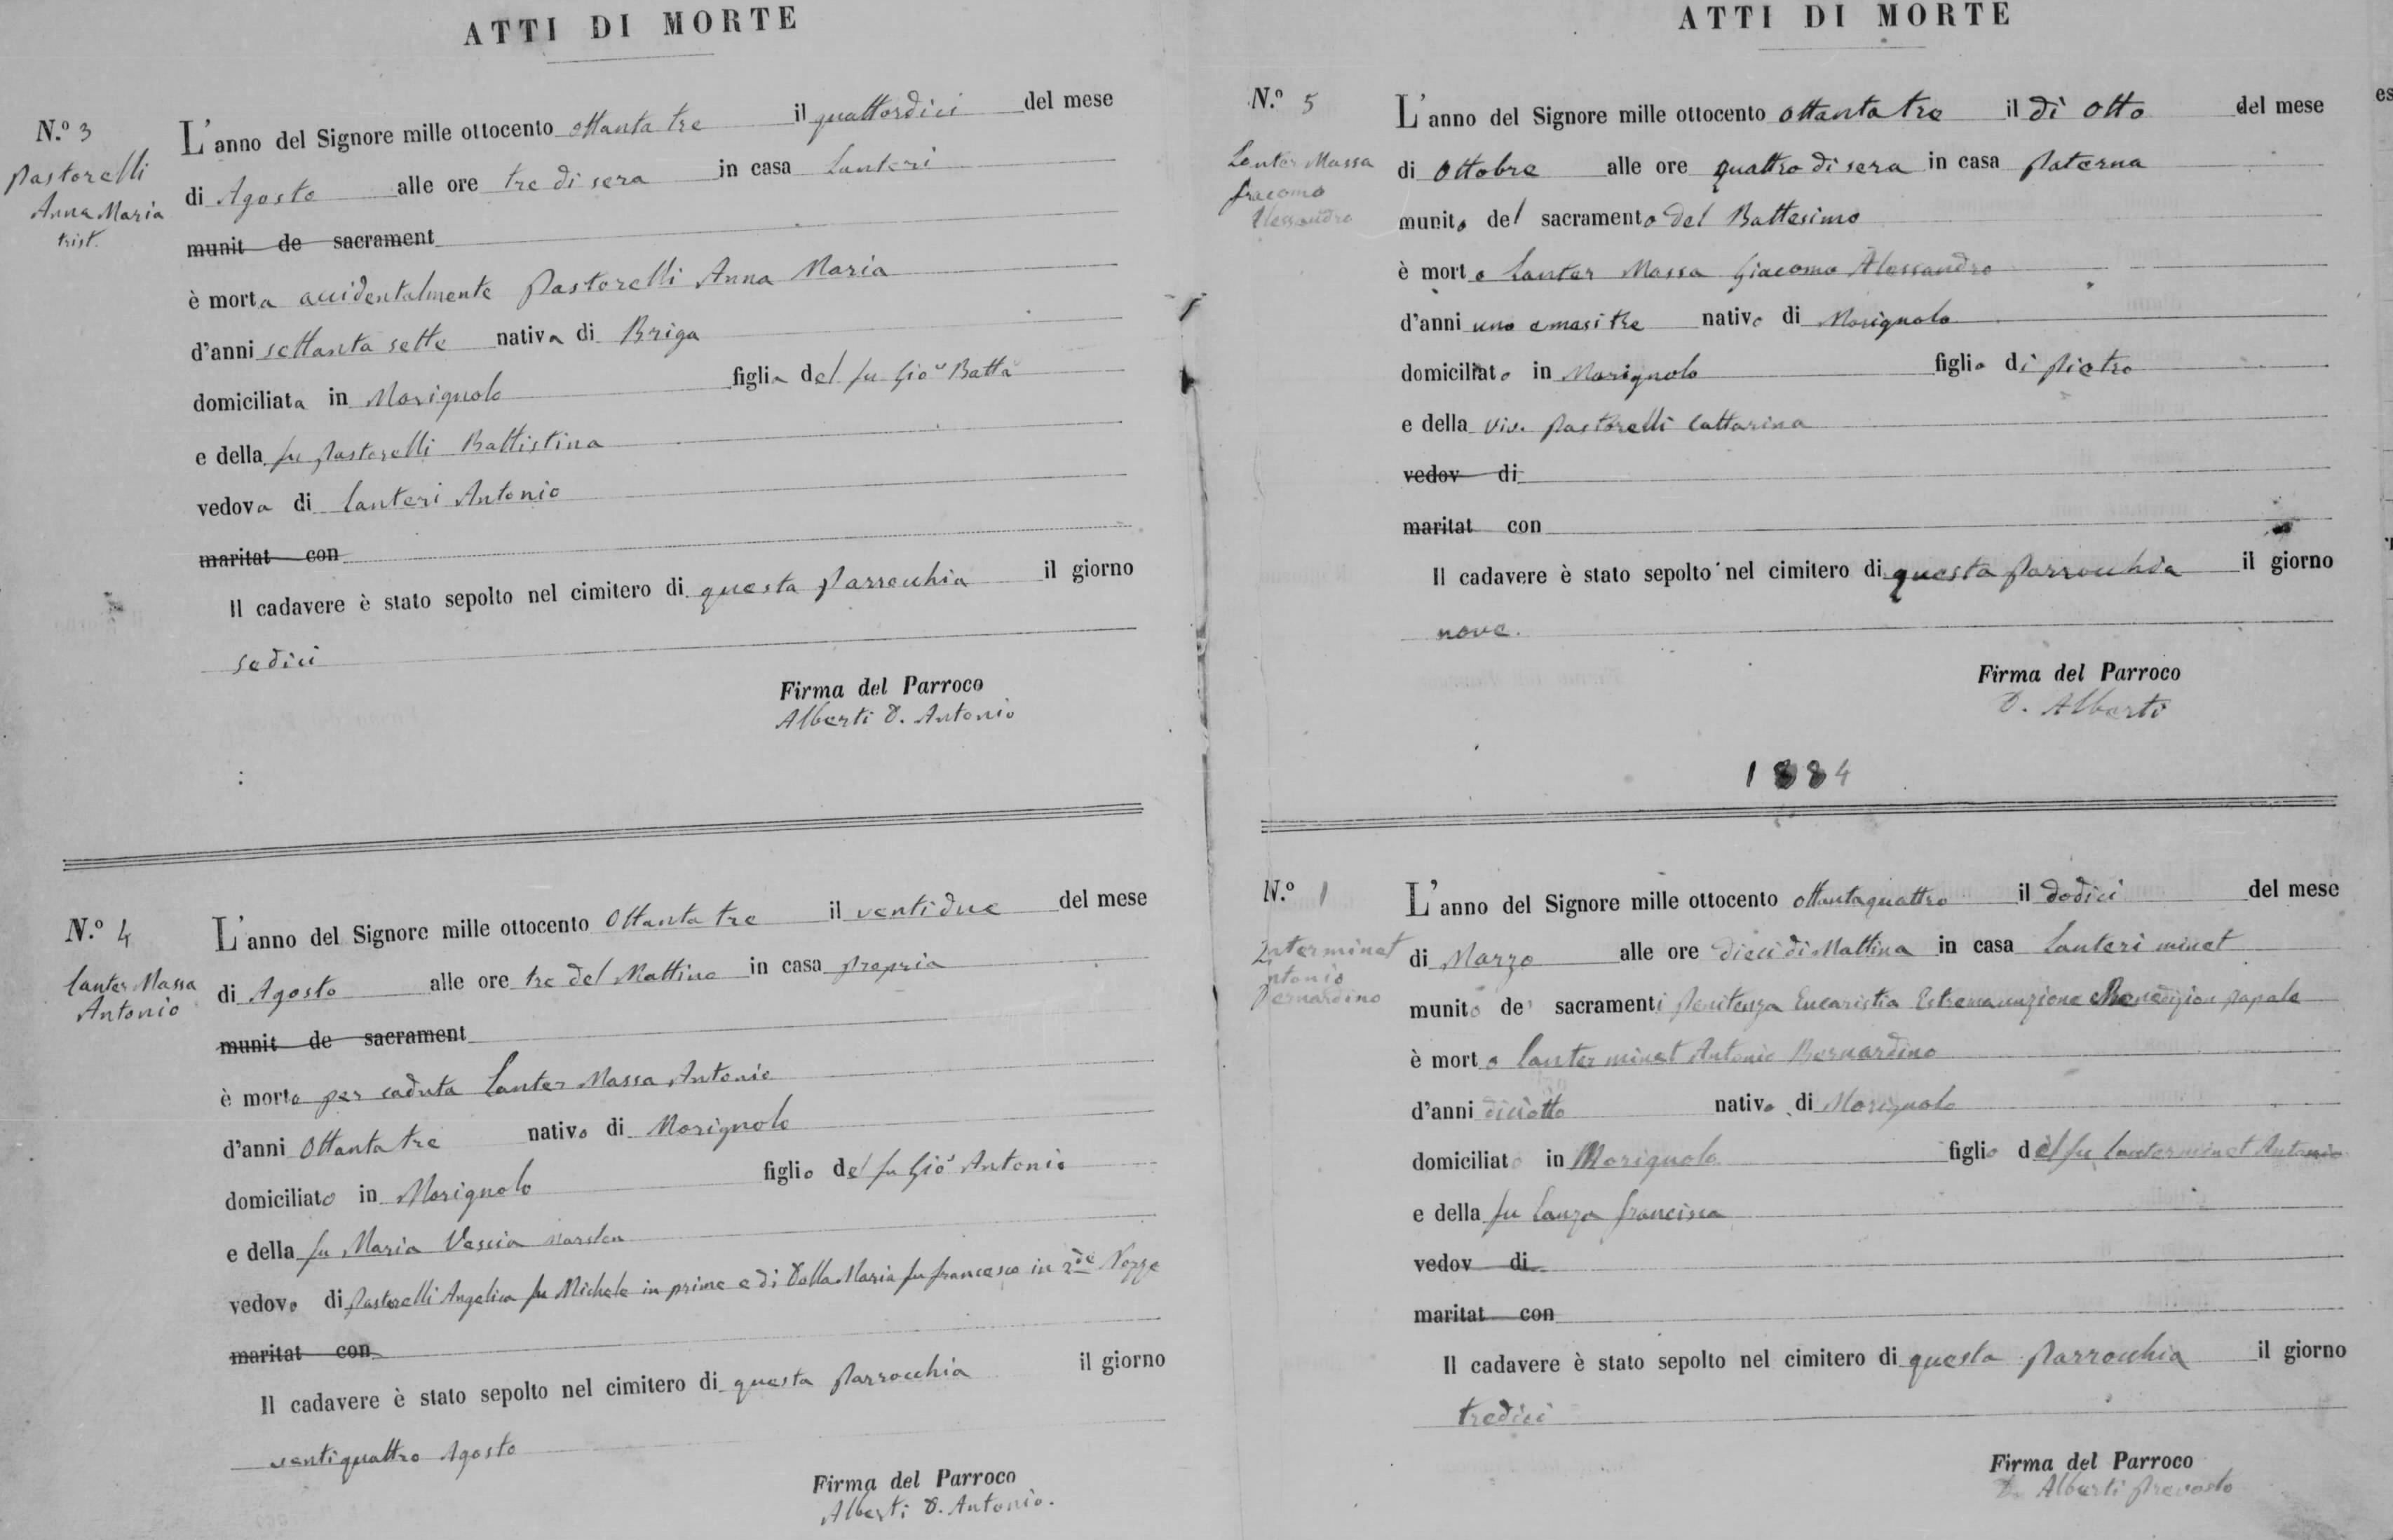 ATTI DI MORTE
N.º 3
Pastorelli
Anna Maria
L'anno del Signore mille ottocento ottanta tre il quattordici del mese
di Agosto alle ore tre di sera in casa Lanteri
munit de sacrament
è morta accidentalmente Pastorelli Anna Maria
d'anni settanta sette nativa di Briga
domiciliata in Morignolo figlia del fu Gio Batta
e della fu Pastorelli Battistina
vedova di Lanteri Antonio
maritat con
Il cadavere è stato sepolto nel cimitero di questa Parrocchia il giorno
sedici
Firma del Parroco
Alberti D. Antonio
N.º 4
Lanter Massa
Antonio
L'anno del Signore mille ottocento Ottanta tre il ventidue del mese
di Agosto alle ore tre del Mattino in casa propria
munit de sacrament
è morto per caduta Lanter Massa Antonio
d'anni Ottanta tre nativo di Morignolo
domiciliato in Morignolo figlio del fu Gio Antonio
e della fu Maria Vescia
vedovo di Pastorelli Angelica fu Michele in prime e di Dolla Maria fu francesco in 2de Nozze
maritat con
Il cadavere è stato sepolto nel cimitero di questa Parrocchia il giorno
ventiquattro Agosto
Firma del Parroco
Alberti D. Antonio.
ATTI DI MORTE
N.º 5
Lanter Massa
Giacomo
Alessandro
L'anno del Signore mille ottocento ottanta tre il dì otto del mese
di Ottobre alle ore quattro di sera in casa Paterna
munito del sacramento del Battesimo
è morto Lanter Massa Giacomo Alessandro
d'anni uno e mesi tre nativo di Morignolo
domiciliato in Morignolo figlio di Pietro
e della viv. Pastorelli Cattarina
vedov di
maritat con
Il cadavere è stato sepolto nel cimitero di questa Parrocchia il giorno
nove.
Firma del Parroco
D. Alberti
1884
N.º 1
Lanterminet
Antonio
Bernardino
L'anno del Signore mille ottocento ottantaquattro il dodici del mese
di Marzo alle ore dieci di Mattina in casa Lanteri minet
munito de' sacramenti Penitenza Eucaristia Estremaunzione e Benedizion papale
è morto Lanter minet Antonio Bernardino
d'anni diciotto nativo di Morignolo
domiciliato in Morignolo figlio del fu Lanterminet Antonio
e della fu Lanza francisca
vedov di
maritat con
Il cadavere è stato sepolto nel cimitero di questa Parrocchia il giorno
tredici
Firma del Parroco
D. Alberti Prevosto